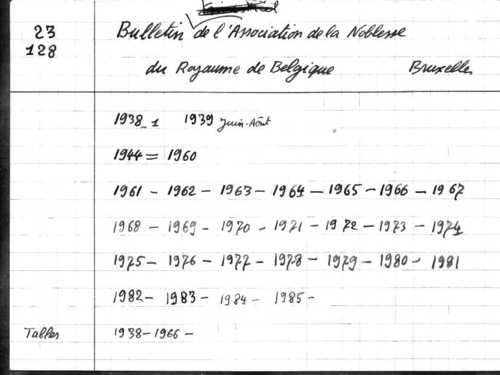 23 Bulletin de l'Association de la Noblesse
128 du Royaume de Belgique Bruxelles
1938-1 1939 Juin-Août
1944 = 1960
1961 - 1962 - 1963 - 1964 - 1965 - 1966 - 1967
1968 - 1969 - 1970 - 1971 - 1972 - 1973 - 1974
1975 - 1976 - 1977 - 1978 - 1979 - 1980 - 1981
1982 - 1983 - 1984 - 1985 -
Tables 1938 - 1966 -